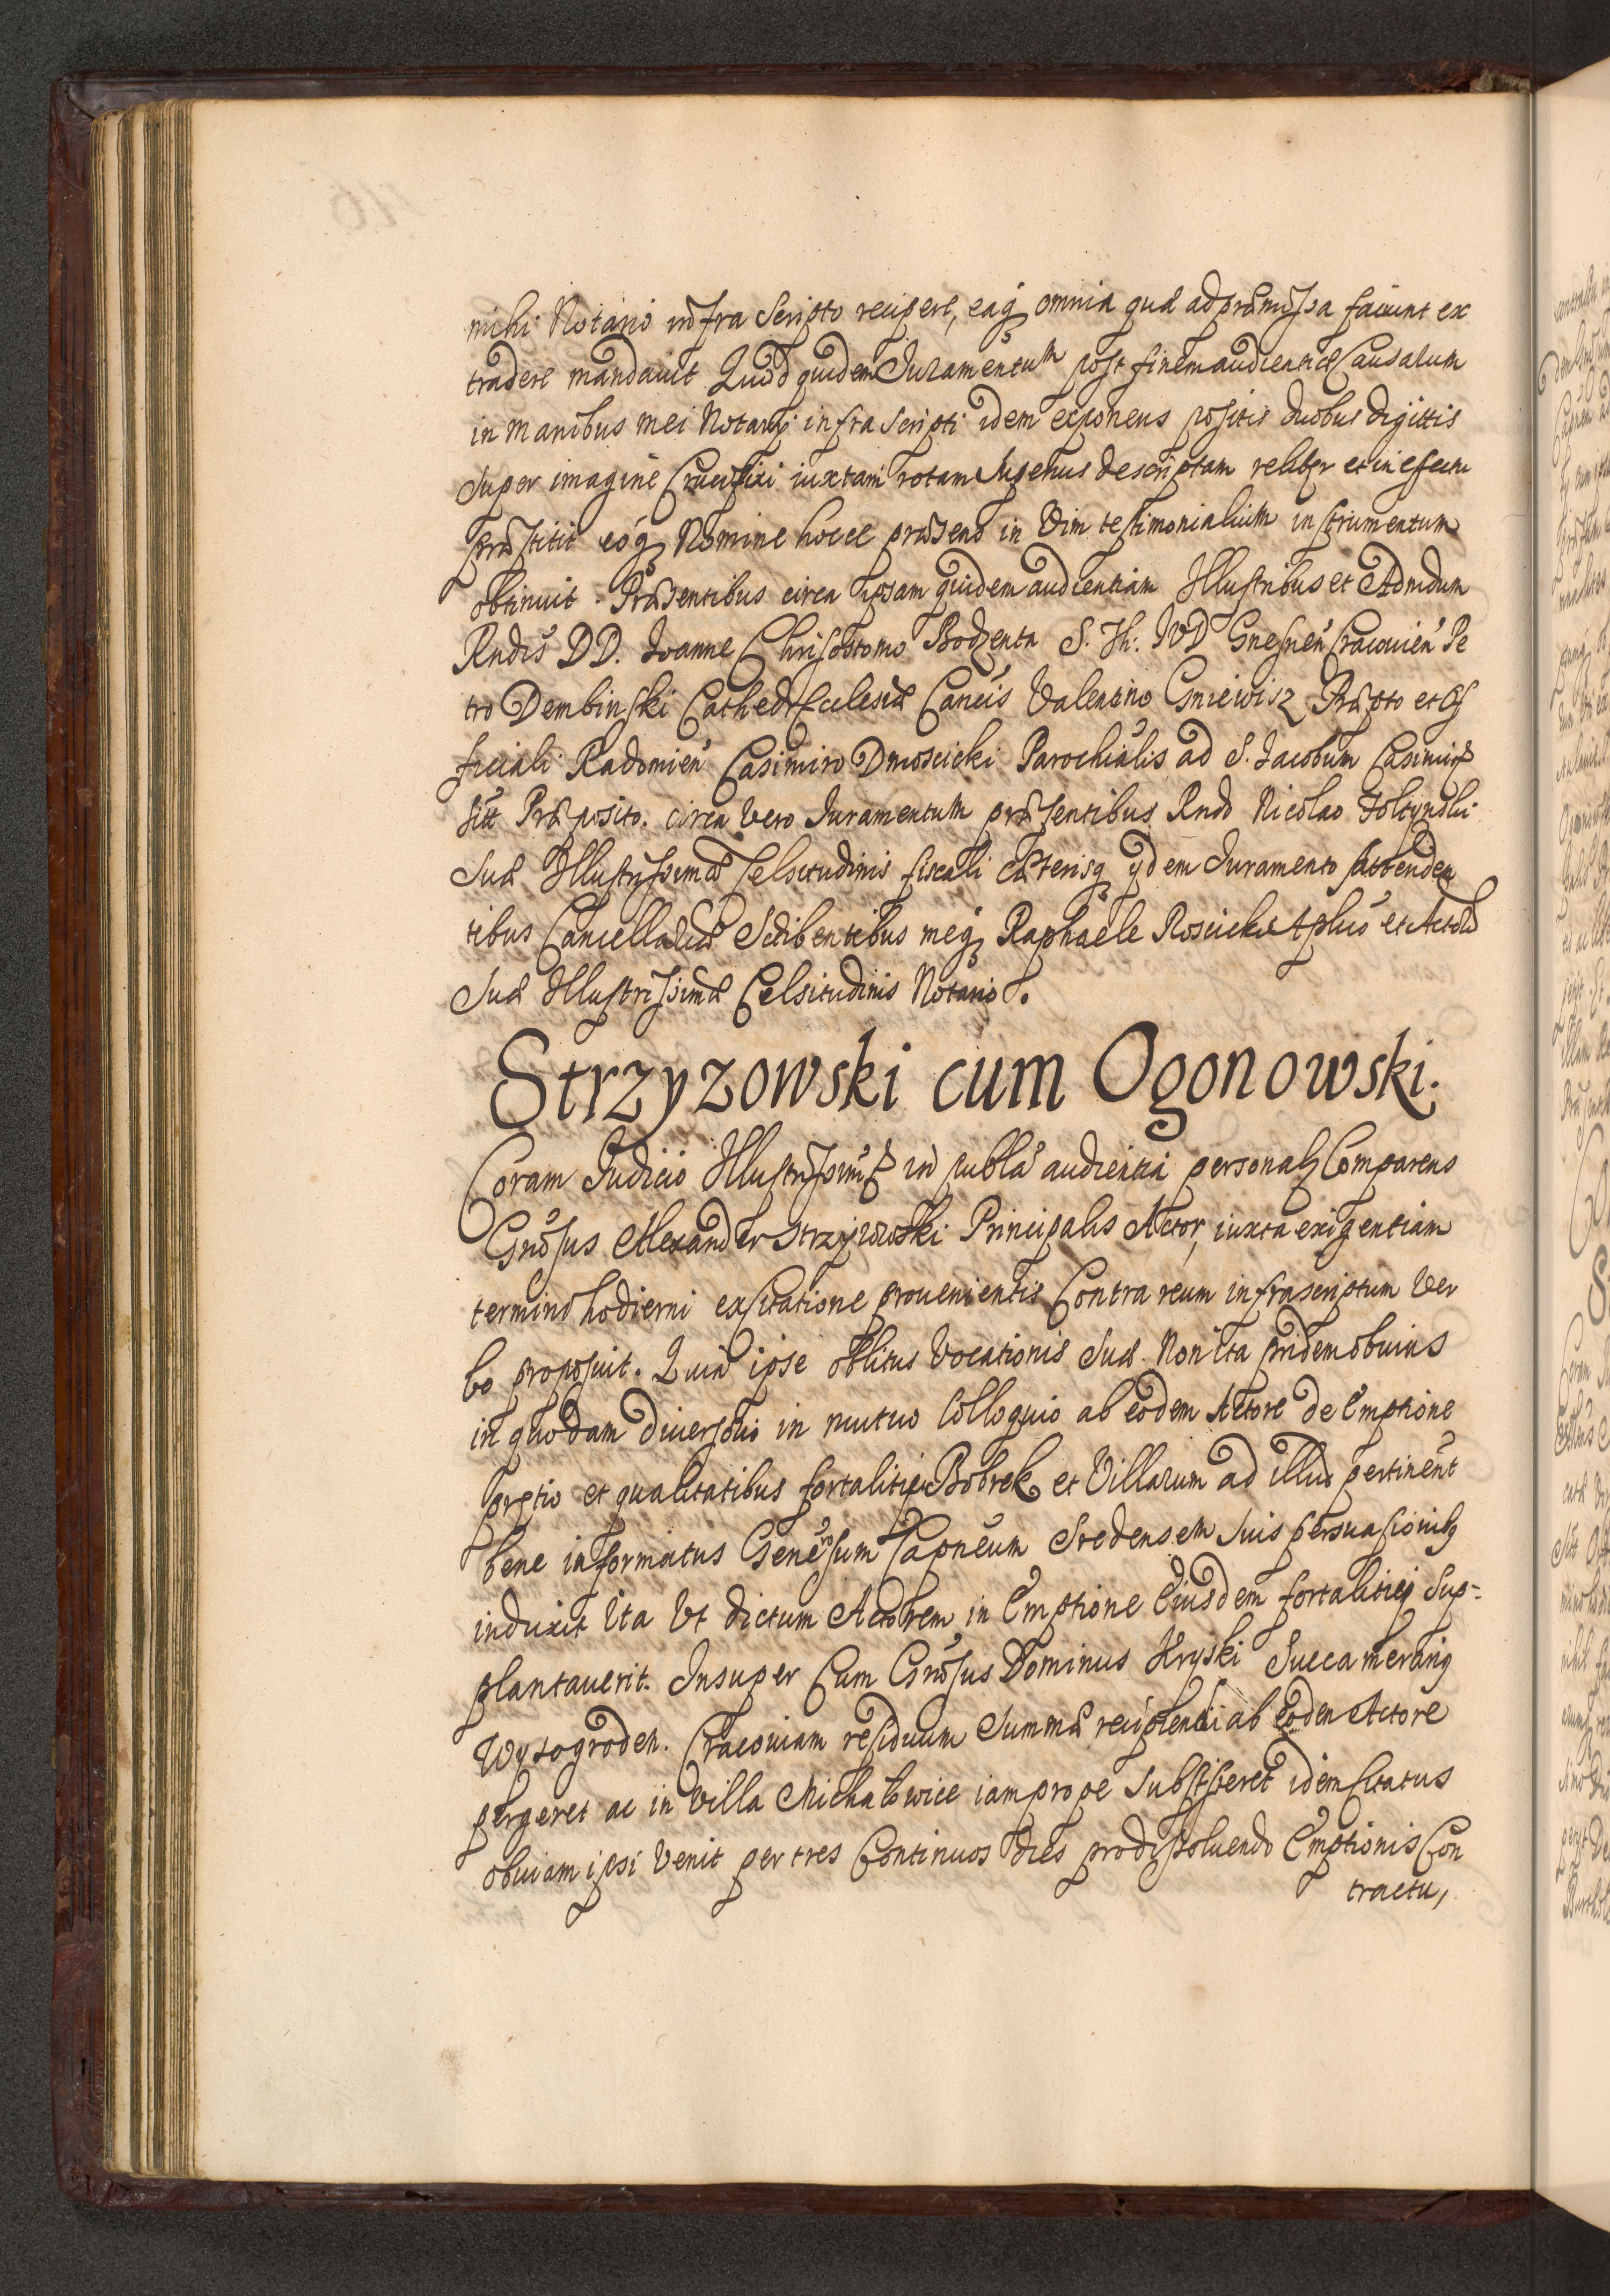 michi Notario infra Scripto recipere, eaq; omnia quæ ad præmissa faciunt ex
tradere mandauit Quod quidem Iuramentum post finem audientiæ Causarum
in manibus mei Notarij infra Scripti idem exponens positis duobus digittis
super imagine Crucifixi iuxtam rotam superius descriptam realiter et in effectu
præstitit eoq; Nomine hocce præsens in Vim testimonialium instrumentum
obtinuit. Præsentibus circa ipsam quidem audientiam Illustribus et Admdum
Rndis DD. Ioanne Chrisostomo Bodzenta S. Th: IVD Gnesnen Cracouien Pe
tro Dembinski Cathed Ecclesiæ Cancis Valentino Gniewisz Præpto et Of
ficiali Radomien Casimiro Dmoscicki Parochialis ad S. Iacobum Casimiræ
sitt Præposito. circa vero Iuramentum præsentibus Rndo Nicolao Foltynski
Suæ Illustrissimæ Celsitudinis fiscali cæterisq; ijdem Iuramento Attenden
tibus Cancellariæ Scribentibus meq; Raphaele Roscicki Aplico et Actor
Suæ Illustrissimæ Celsitudinis Notario.
Strzyzowski cum Ogonowski.
Coram Judicio Illustrissimæ in publa audientia personalr Comparens
Gnosus Alexander Strzyzowski Principalis Actor, iuxta exigentiam
termini hodierni ex citatione prouenientis Contra reum infrascriptum Ver
bo proposuit. Quia ipse oblitus Vocationis Suæ Non ita pridem obuius
in quodam diuersorio in mutuo Colloquio ab eodem Actore de Emptione
pretio et qualitatibus fortalitij Bobrek et Villarum ad illud pertinent
bene informatus Generosum Capneum Credensem Suis persuasionib;
induxit Ita Vt dictum Actorem in Emptione Eiusdem fortalitij Sup-
plantauerit. Insuper Cum Gnosus Dominus Kryski Succamerarig
Wyszogroden. Cracouiam residuum Summæ recipiendi ab eoden Actore
pergeret ac in Villa Michałowice iam prope Substiteret idem Citatus
obuiam ipsi Venit per tres Continuos dies pro dissoluendo Emptionis Con
tractu,